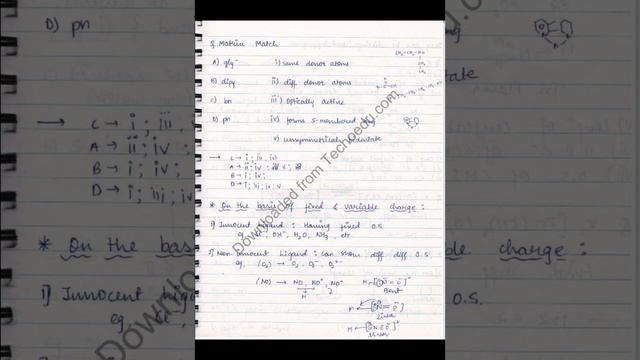 Q Matrix Match
A) gly⁻ i) same donor atoms
B) dipy ii) diff donor atoms
C) bn iii) optically active
D) pn iv) forms 5-membered
v) unsymmetrical
C → i ; iii, iv
A → ii ; iv ;
B → i ; iv ;
D → i ; iii ; iv, v
* On the basis of fixed & variable charge :
i) Innocent ligand : Having fixed O.S.
eg, Cl⁻, OH⁻, H₂O, NH₃, etc
2) Non Innocent Ligand : can show diff diff O.S.
eg, (O₂) → O₂, O₂⁻, O₂²⁻
(NO) → NO, NO⁺, NO⁻
Bent
Linear
Downloaded from Techpedu.com
D) pn
* On the bas
i) Innocent
eg. Cl
charge :
O.S.